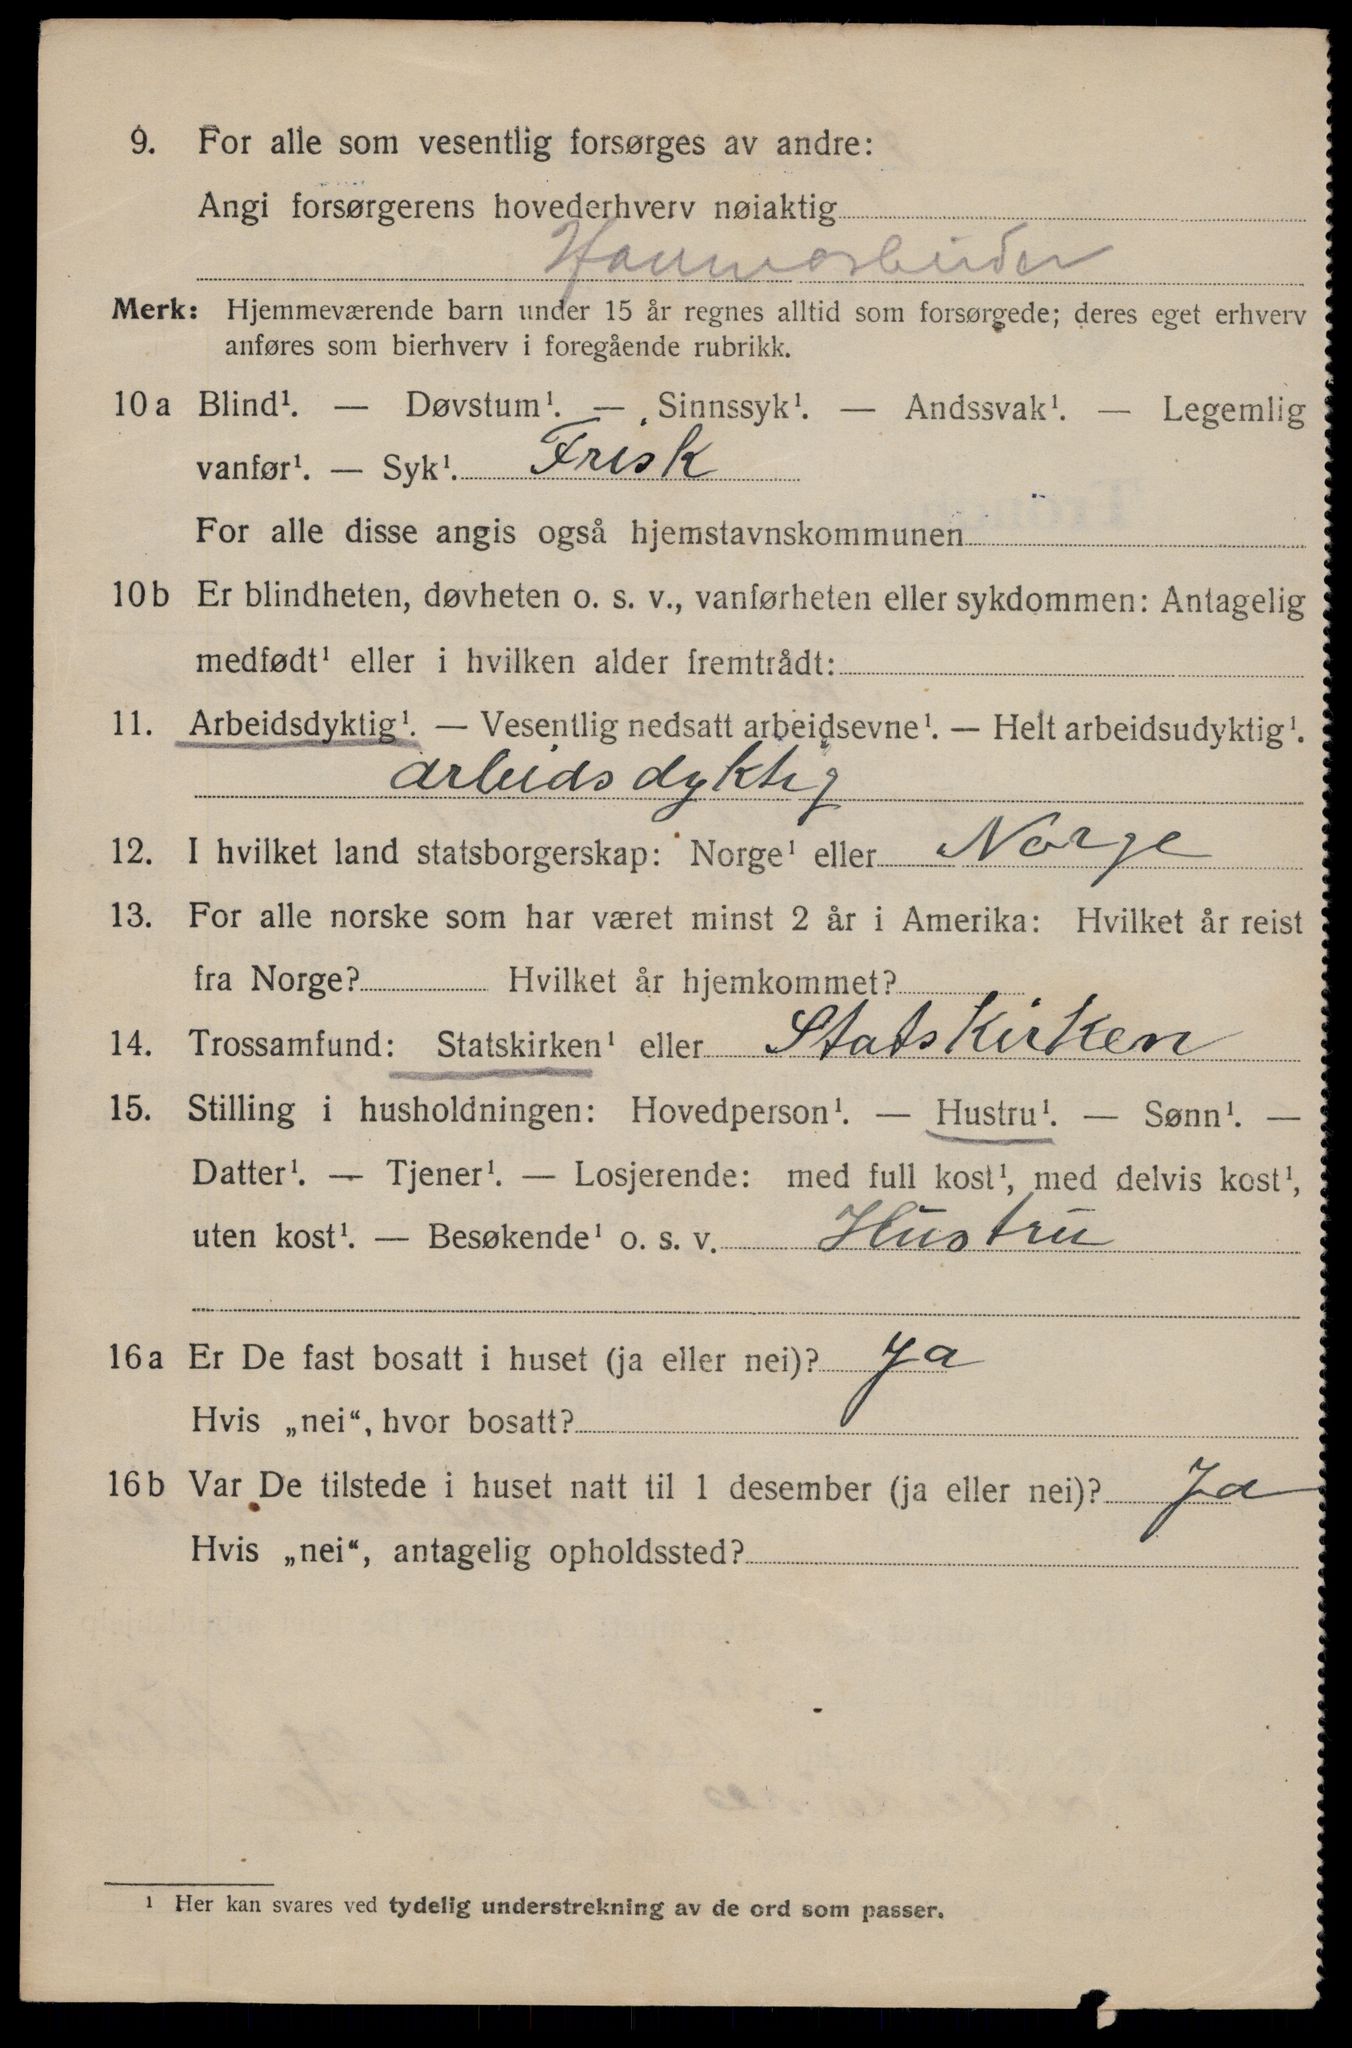 9. For alle som vesentlig forsørges av andre:
Angi forsørgerens hovederhverv nøiaktig
Havnearbeider
Merk: Hjemmeværende barn under 15 år regnes alltid som forsørgede; deres eget erhverv
anføres som bierhverv i foregående rubrikk.
10 a Blind¹. — Døvstum¹. — Sinnssyk¹. — Andssvak¹. — Legemlig
vanfør¹. — Syk¹. Frisk
For alle disse angis også hjemstavnskommunen
10 b Er blindheten, døvheten o. s. v., vanførheten eller sykdommen: Antagelig
medfødt¹ eller i hvilken alder fremtrådt:
11. Arbeidsdyktig¹. — Vesentlig nedsatt arbeidsevne¹. — Helt arbeidsudyktig¹.
arbeidsdyktig
12. I hvilket land statsborgerskap: Norge¹ eller Norge
13. For alle norske som har været minst 2 år i Amerika: Hvilket år reist
fra Norge? Hvilket år hjemkommet?
14. Trossamfund: Statskirken¹ eller Statskirken
15. Stilling i husholdningen: Hovedperson¹. — Hustru¹. — Sønn¹. —
Datter¹. — Tjener¹. — Losjerende: med full kost¹, med delvis kost¹,
uten kost¹. — Besøkende¹ o. s. v. Hustru
16 a Er De fast bosatt i huset (ja eller nei)? Ja
Hvis „nei“, hvor bosatt?
16 b Var De tilstede i huset natt til 1 desember (ja eller nei)? Ja
Hvis „nei“, antagelig opholdssted?
¹ Her kan svares ved tydelig understrekning av de ord som passer.